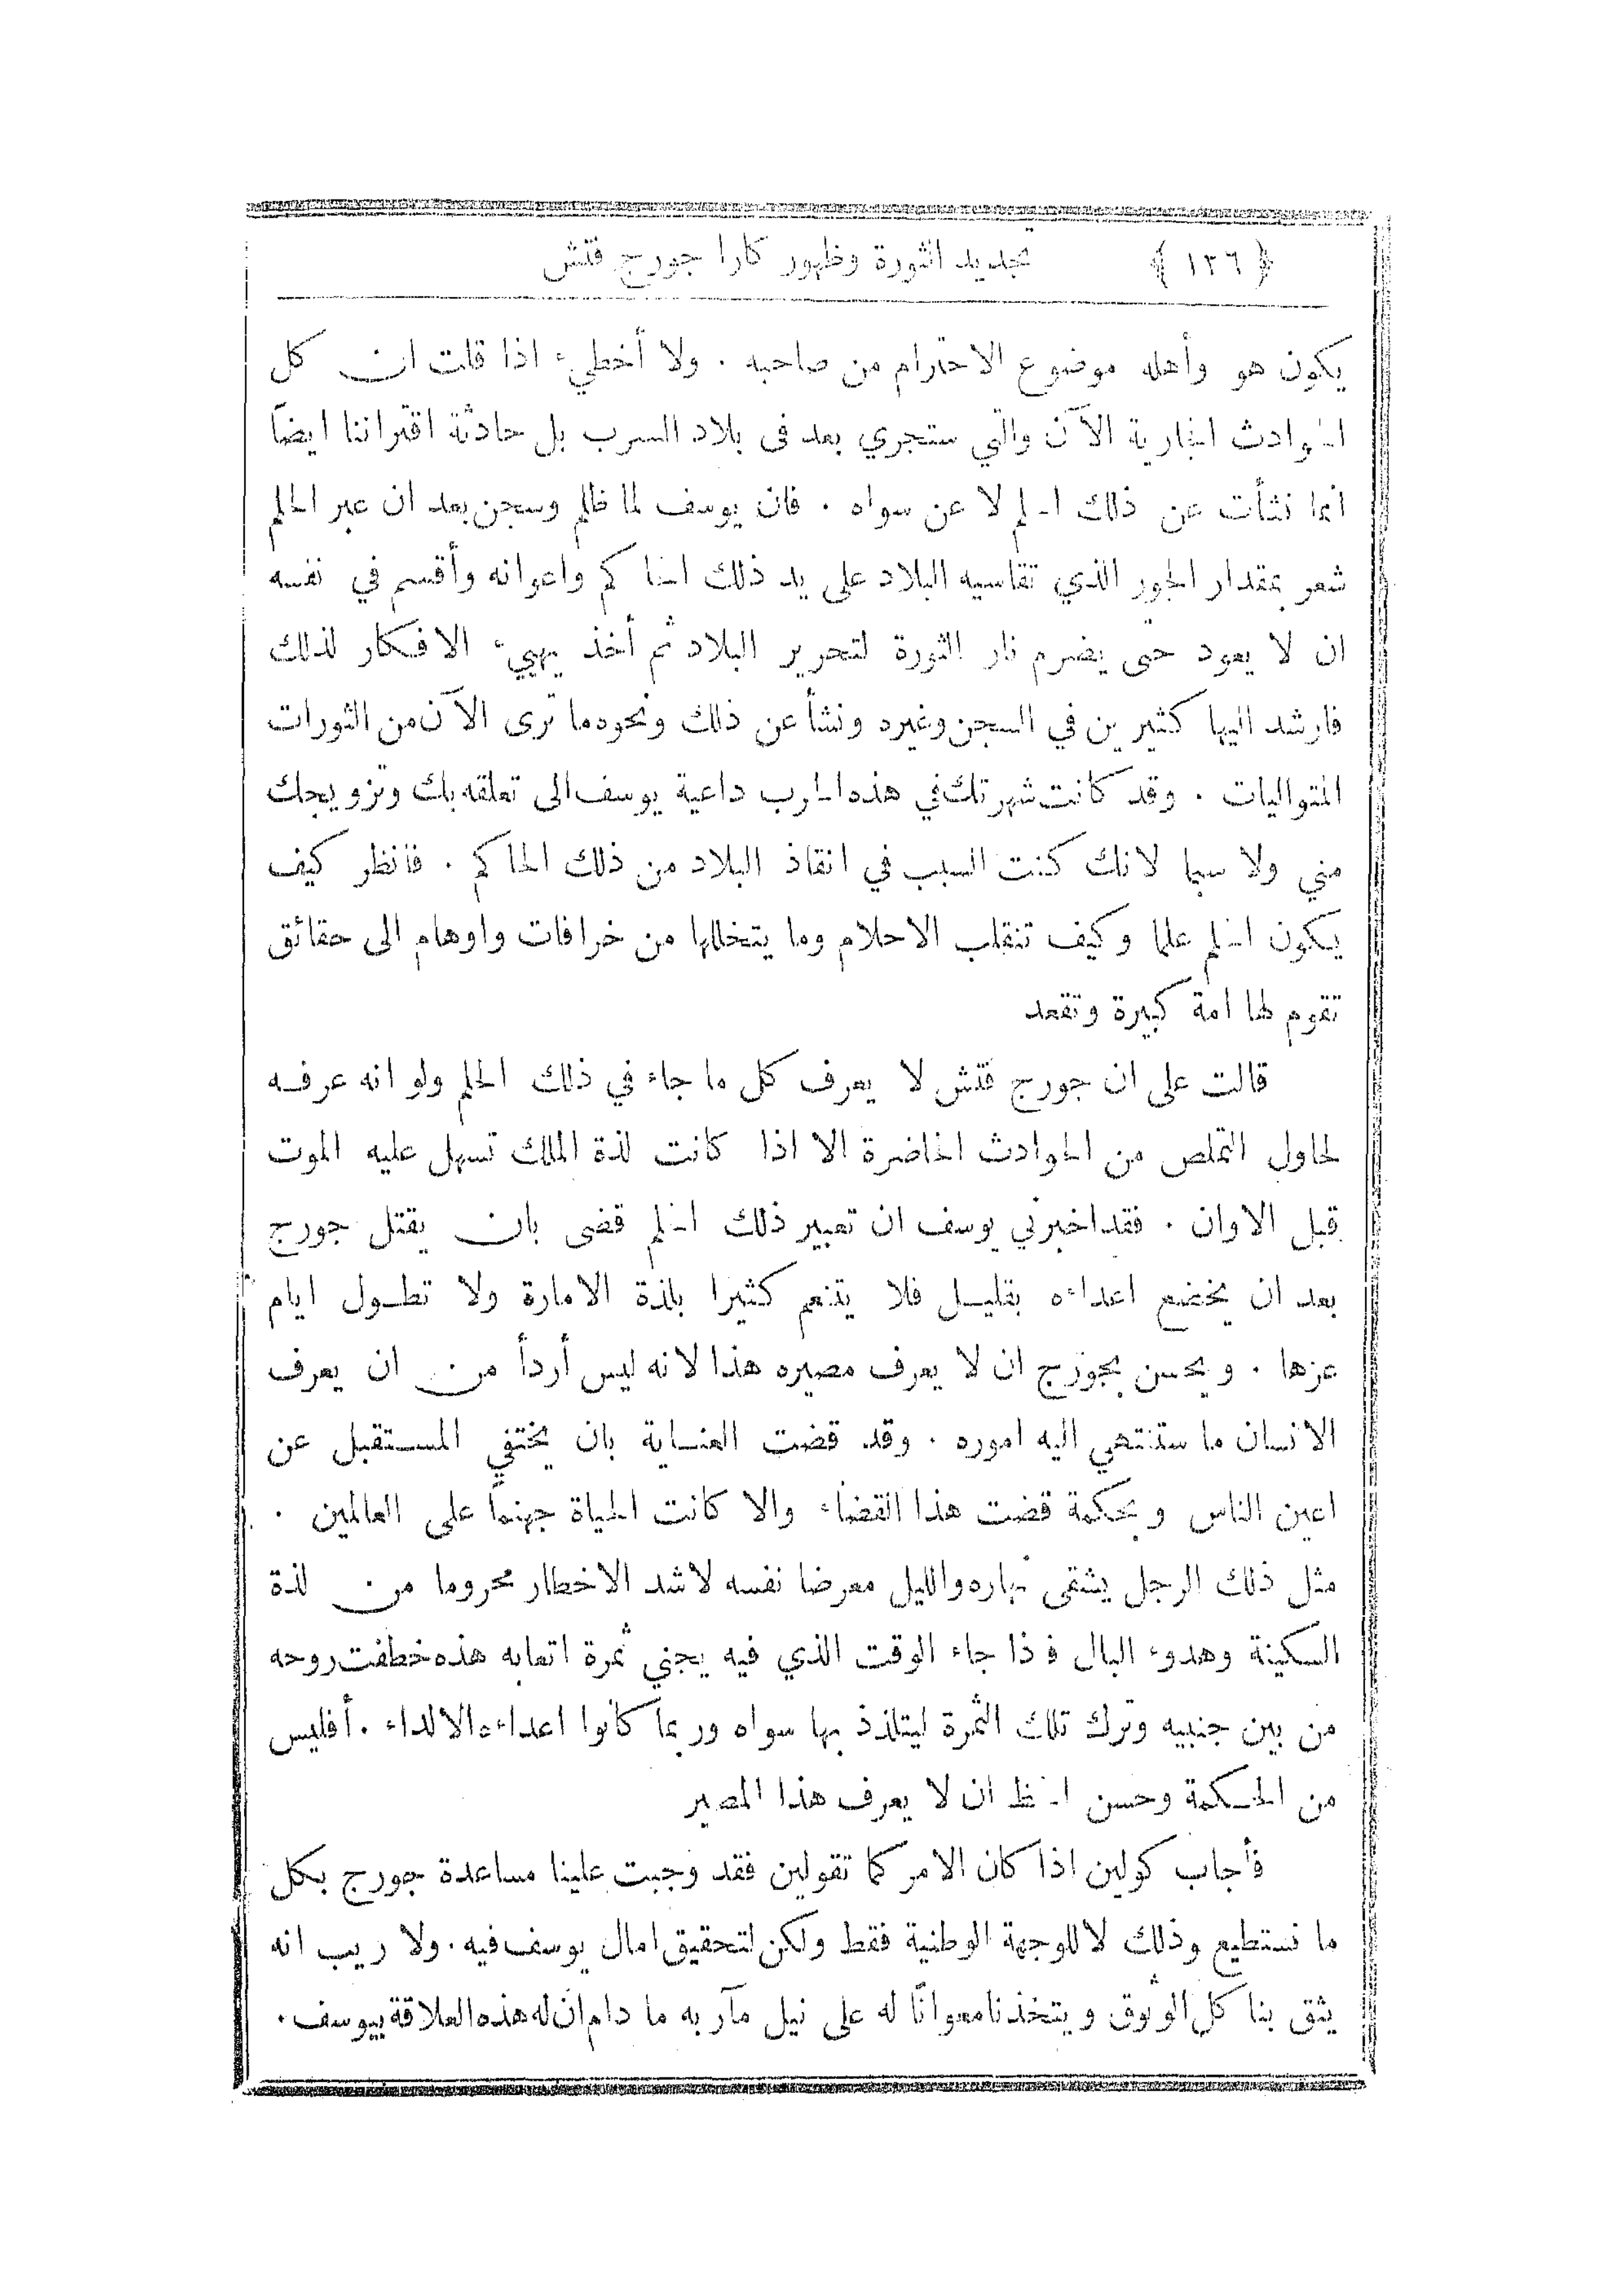 ﴿ ١٢٦ ﴾ تجديد الثورة وظهور كارا جورج فتش
يكون هو وأهله موضوع الاحترام من صاحبه . ولا أخطيء اذا قلت ان كل
الحوادث الجارية الآن والتي ستجري بعد فى بلاد السرب بل حادثة اقتراننا ايضاً
انما نشأت عن ذلك الحلم لا عن سواه . فان يوسف لما ظلم وسجن بعد ان عبر الحلم
شعر بمقدار الجور الذي تقاسيه البلاد على يد ذلك الحاكم واعوانه وأقسم في نفسه
ان لا يعود حتى يضرم نار الثورة لتحرير البلاد ثم أخذ يهييء الافكار لذلك
فارشد اليها كثيرين في السجن وغيره ونشأ عن ذلك ونحوه ما ترى الآن من الثورات
المتواليات . وقد كانت شهرتك في هذه الحرب داعية يوسف الى تعلقه بك وتزويجك
مني ولا سيما لانك كنت السبب في انقاذ البلاد من ذلك الحاكم . فانظر كيف
يكون الحلم علما وكيف تنقلب الاحلام وما يتخللها من خرافات واوهام الى حقائق
تقوم لها امة كبيرة وتقعد
قالت على ان جورج فتش لا يعرف كل ما جاء في ذلك الحلم ولو انه عرفه
لحاول التملص من الحوادث الحاضرة الا اذا كانت لذة الملك تسهل عليه الموت
قبل الاوان . فقد اخبرني يوسف ان تعبير ذلك الحلم قضى بان يقتل جورج
بعد ان يخضع اعداءه بقليل فلا يتنعم كثيرا بلذة الامارة ولا تطول ايام
عزها . ويحسن بجورج ان لا يعرف مصيره هذا لانه ليس أردأ من ان يعرف
الانسان ما ستنتهي اليه اموره . وقد قضت العناية بان يختفي المستقبل عن
اعين الناس وبحكمة قضت هذا القضاء والا كانت الحياة جهنماً على العالمين .
مثل ذلك الرجل يشقى نهاره والليل معرضا نفسه لاشد الاخطار محروما من لذة
السكينة وهدوء البال فاذا جاء الوقت الذي فيه يجني ثمرة اتعابه هذه خطفت روحه
من بين جنبيه وترك تلك الثمرة ليتلذذ بها سواه وربما كانوا اعداءه الالداء . أفليس
من الحكمة وحسن الحظ ان لا يعرف هذا المصير
فأجاب كولين اذا كان الامر كما تقولين فقد وجبت علينا مساعدة جورج بكل
ما نستطيع وذلك لا للوجهة الوطنية فقط ولكن لتحقيق امال يوسف فيه . ولا ريب انه
يثق بنا كل الوثوق ويتخذنا معواناً له على نيل مآربه ما دام ان له هذه العلاقة بيوسف .